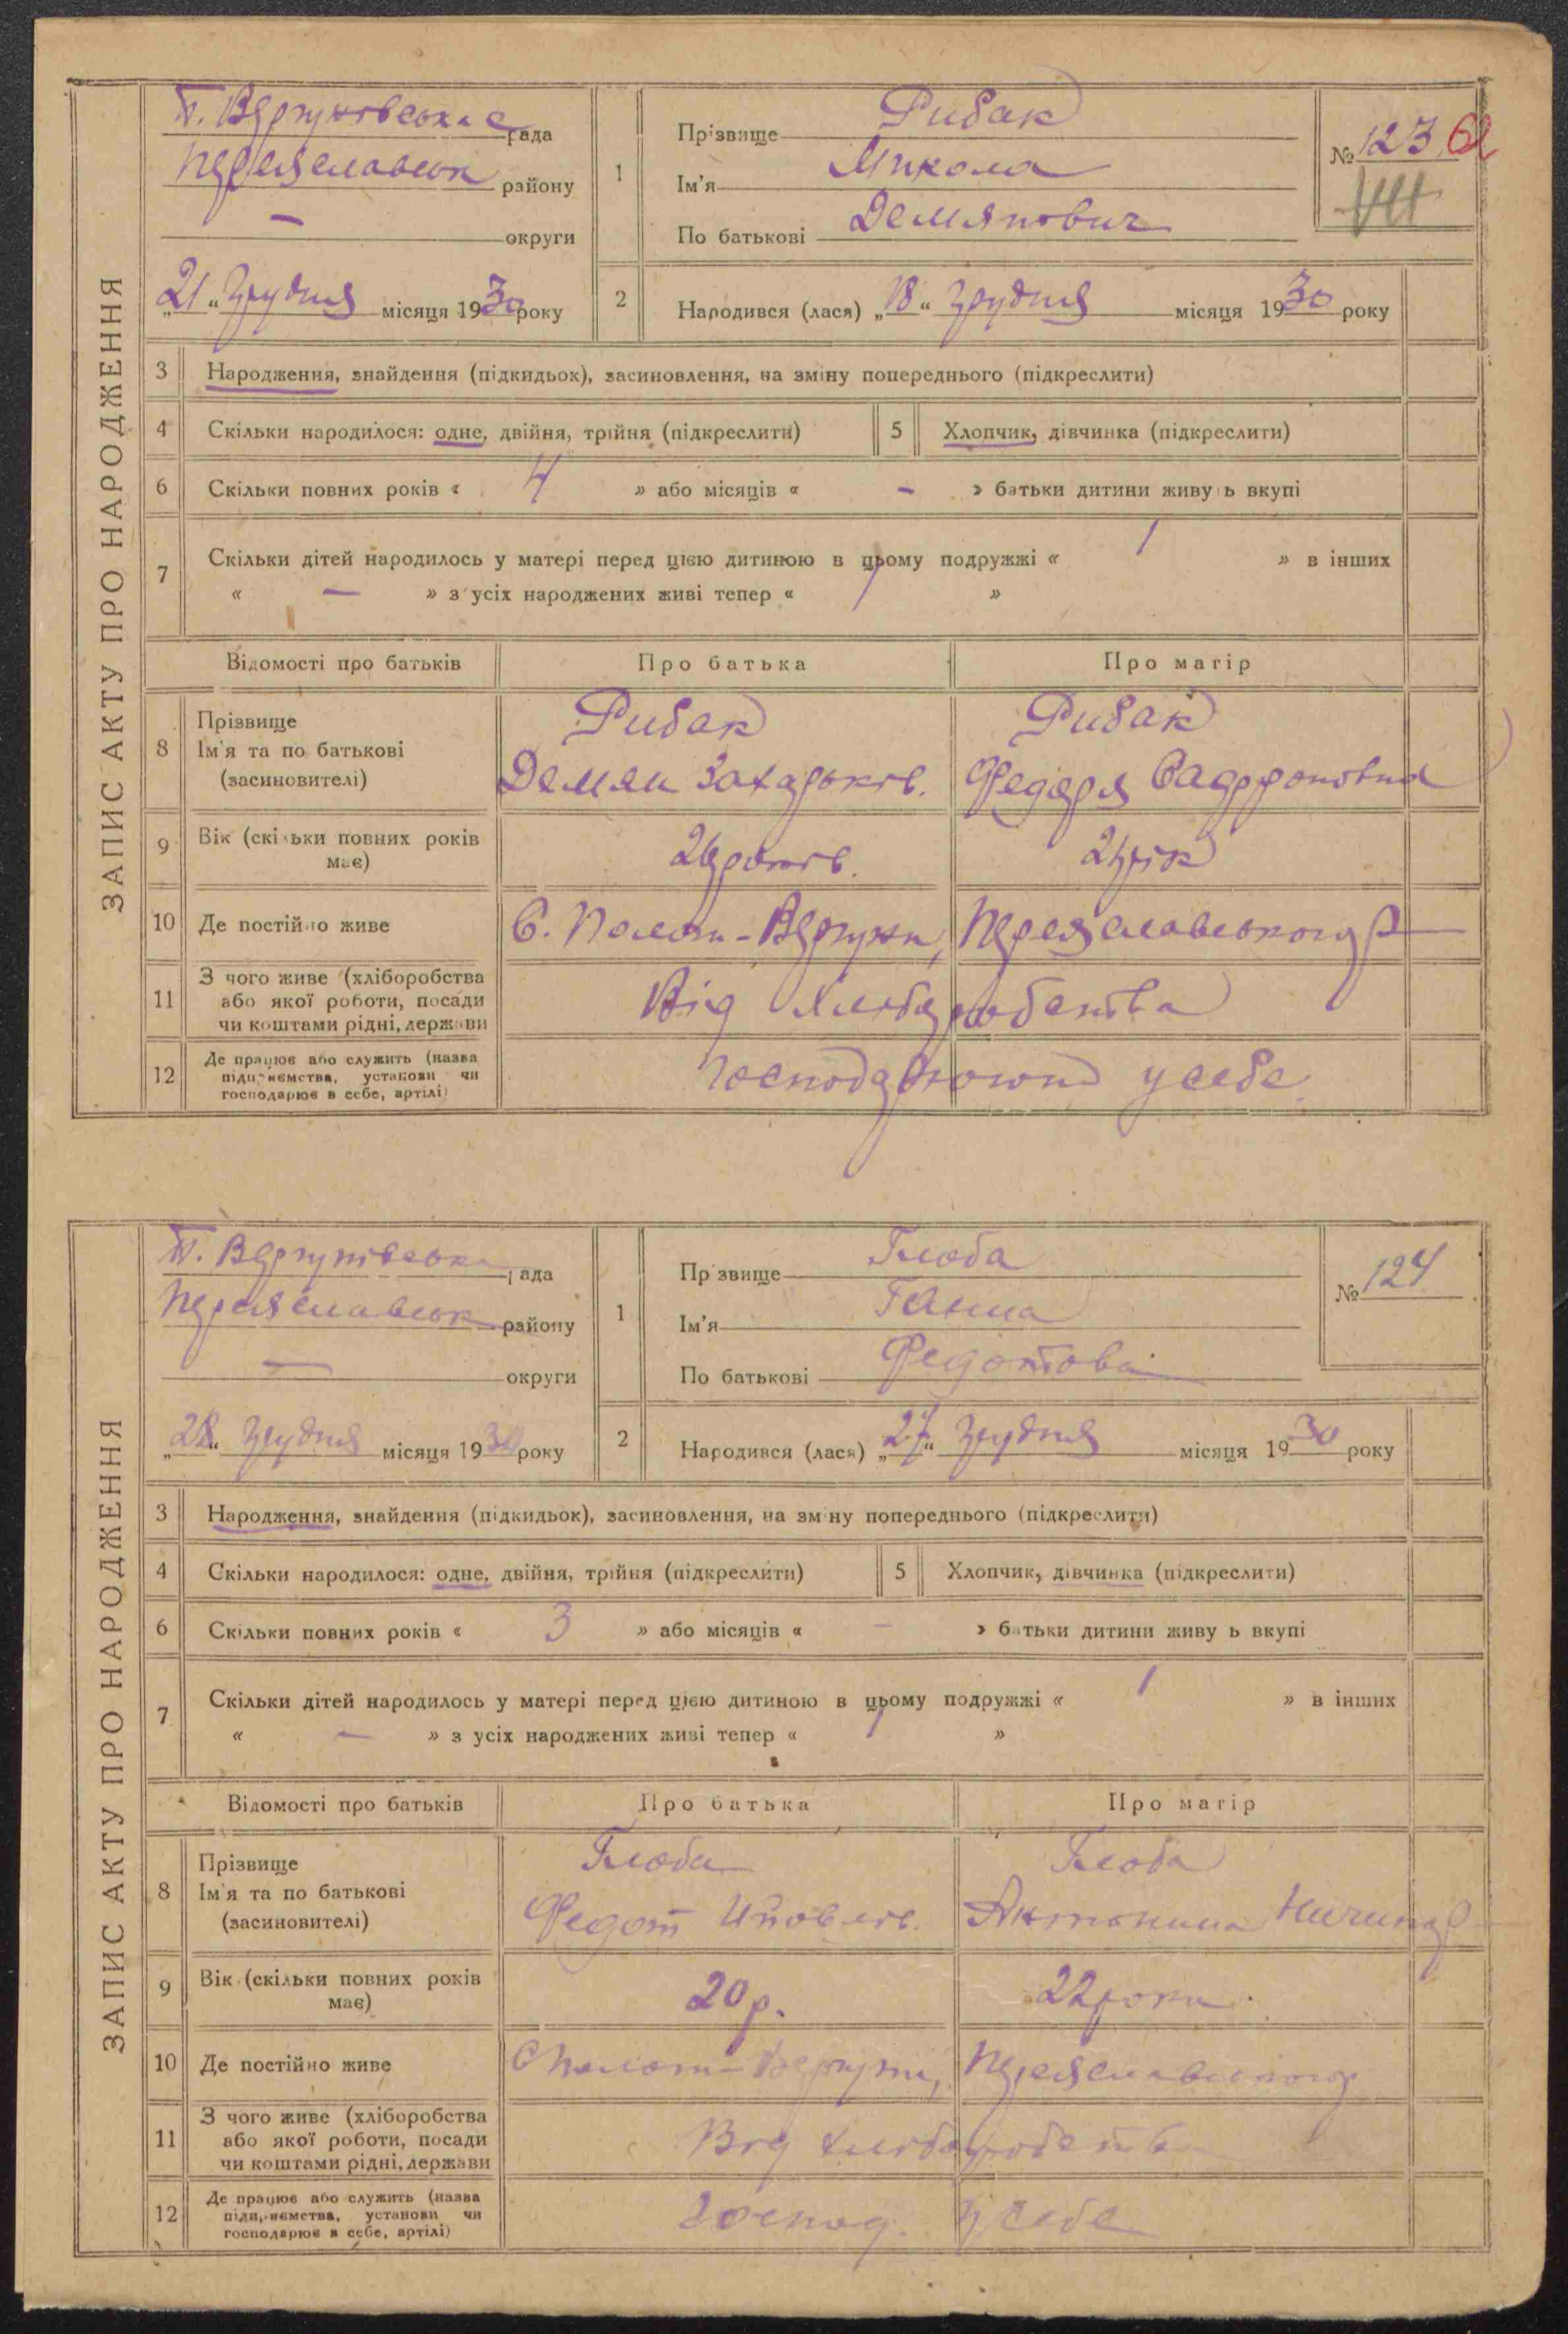 ЗАПИС АКТУ ПРО НАРОДЖЕННЯ
П. Вергунівська рада
Переяславськ району
— округи
„21“ Грудня місяця 1930 року
1
Прізвище Рибак
Ім'я Микола
По батькові Демянович
№ 123
2
Народився (лася) „18“ грудня місяця 1930 року
3 Народження, знайдення (підкидьок), засиновлення, на зміну попереднього (підкреслити)
4 Скільки народилося: одне, двійня, трійня (підкреслити) 5 Хлопчик, дівчинка (підкреслити)
6 Скільки повних років « 4 » або місяців « - » батьки дитини живуть вкупі
7 Скільки дітей народилось у матері перед цією дитиною в цьому подружжі « 1 » в інших
« — » з усіх народжених живі тепер « 1 »
Відомості про батьків Про батька Про матір
8 Прізвище
Ім'я та по батькові
(засиновителі)
Рибак Рибак
Демян Захарьков. Федора
9 Вік (скільки повних років
має)
10 Де постійно живе С. Полог-Вергуни, Переяславського Р
11 З чого живе (хліборобства
або якої роботи, посади
чи коштами рідні, держави
Від хліборобства
12 Де працює або служить (назва
підприємства, установи чи
господарює в себе, артілі)
у себе
ЗАПИС АКТУ ПРО НАРОДЖЕННЯ
П. Вергунівська рада
Переяславськ району
— округи
„28“ Грудня місяця 1930 року
1
Прізвище Глоба
Ім'я Ганна
По батькові Федотова
№ 124
2
Народився (лася) „27“ грудня місяця 1930 року
3 Народження, знайдення (підкидьок), засиновлення, на зміну попереднього (підкреслити)
4 Скільки народилося: одне, двійня, трійня (підкреслити) 5 Хлопчик, дівчинка (підкреслити)
6 Скільки повних років « 3 » або місяців « - » батьки дитини живуть вкупі
7 Скільки дітей народилось у матері перед цією дитиною в цьому подружжі « 1 » в інших
« — » з усіх народжених живі тепер « 1 »
Відомості про батьків Про батька Про матір
8 Прізвище
Ім'я та по батькові
(засиновителі)
Глоба Глоба
Федот Антонина Ничипор
9 Вік (скільки повних років
має)
20 р. 22 роки
10 Де постійно живе С Полог-Вергуни, Переяславського
11 З чого живе (хліборобства
або якої роботи, посади
чи коштами рідні, держави
Від хліборобства
12 Де працює або служить (назва
підприємства, установи чи
господарює в себе, артілі)
Господ. у себе